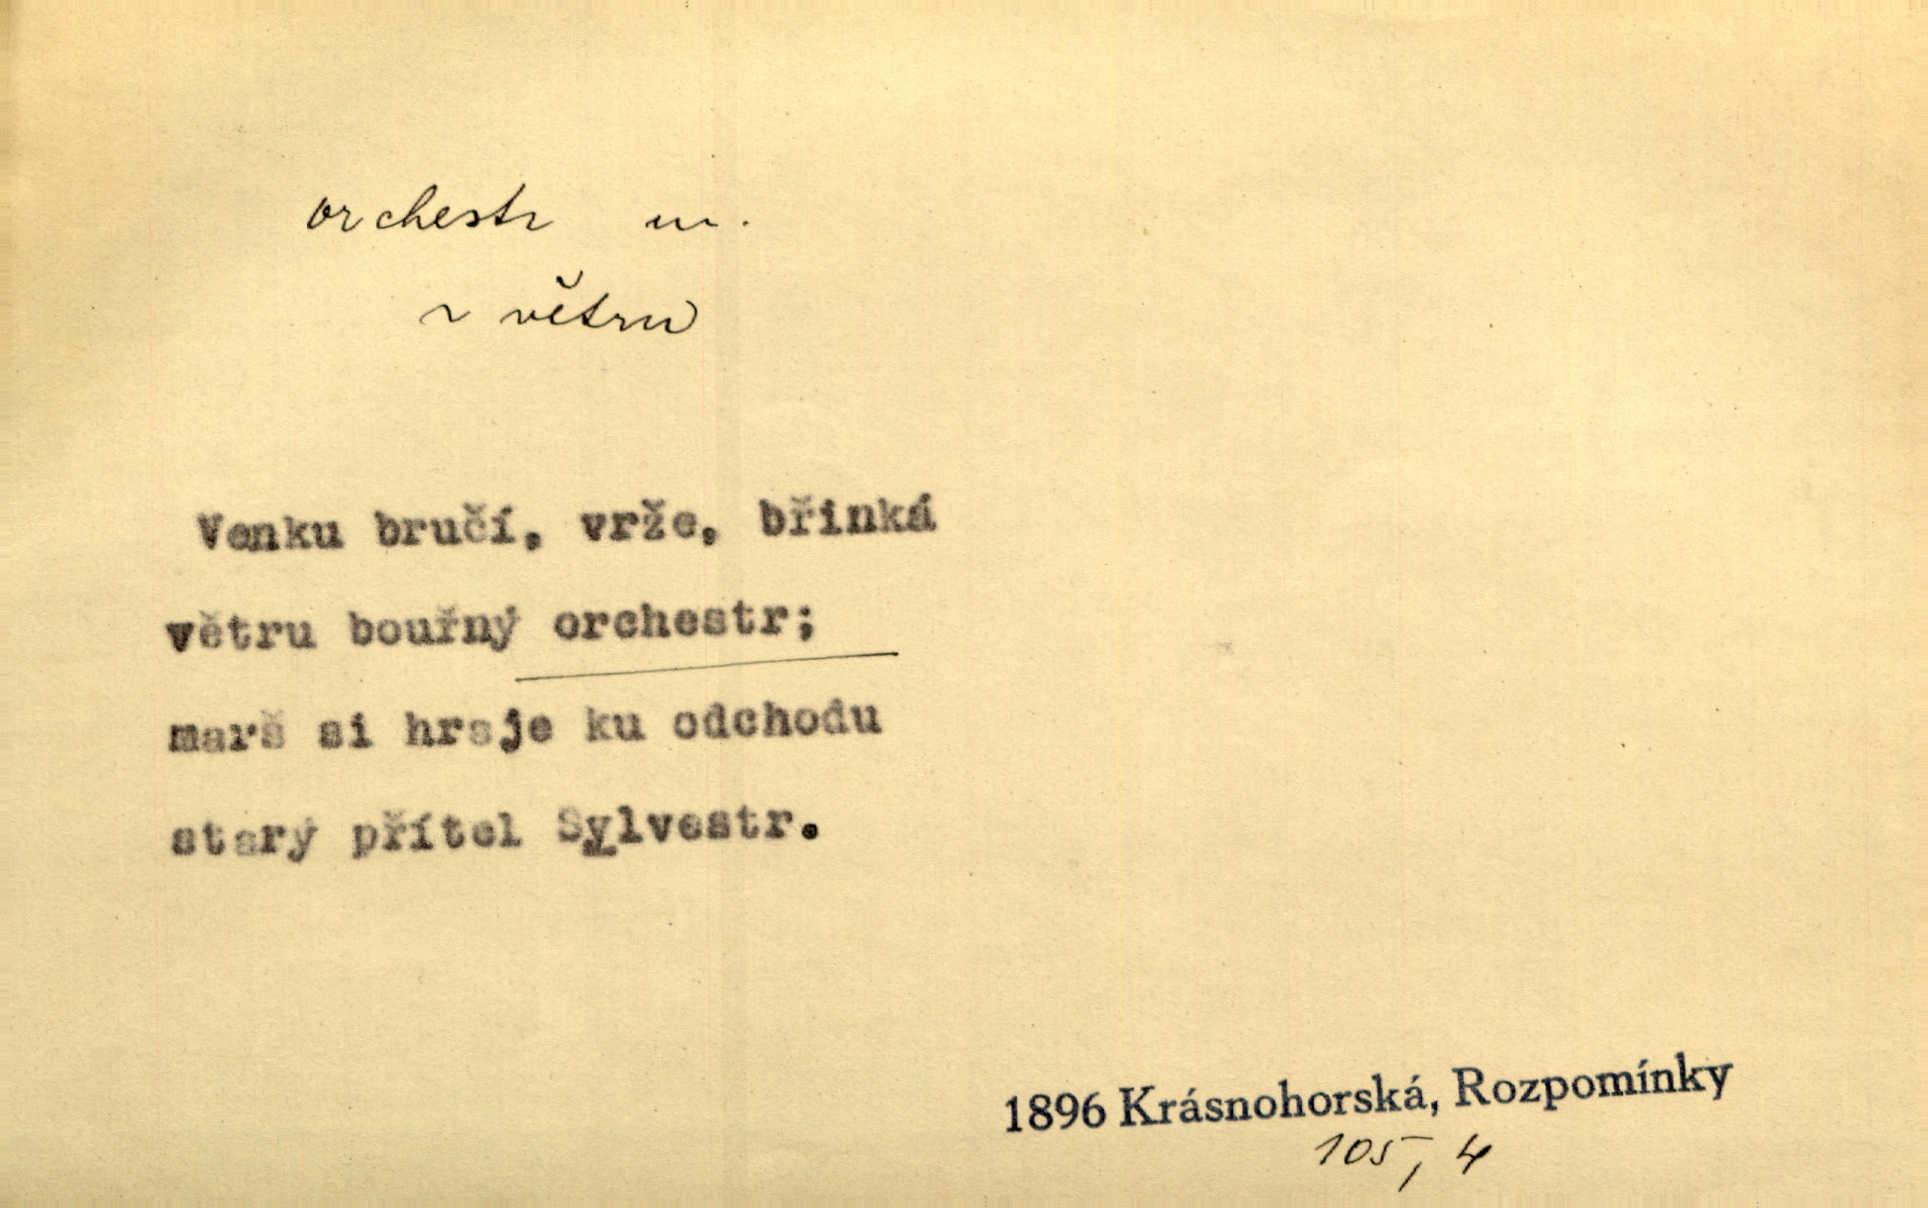 orchestr m.
~ větru
Venku bručí, vrže, břinká
větru bouřný orchestr;
marš si hraje ku odchodu
starý přítel Sylvestr.
1896 Krásnohorská, Rozpomínky
105, 4